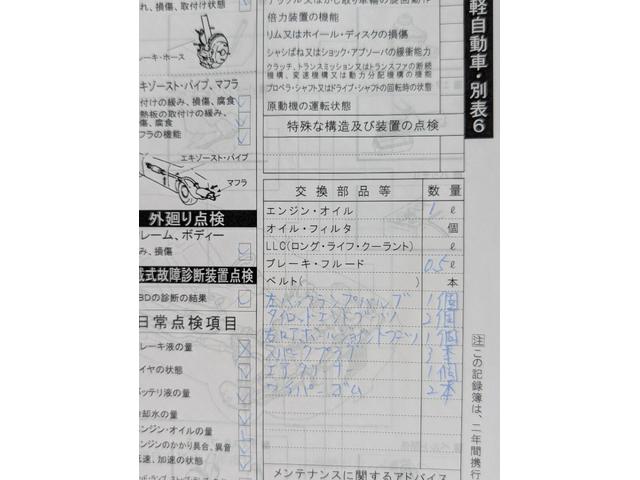 れ、損傷、取付け状態
ブレーキ・ホース
エキゾースト・パイプ、マフラ
取付けの緩み、損傷、腐食
遮熱板の取付けの緩み、損傷、腐食
マフラの機能
エキゾースト・パイプ
マフラ
外廻り点検
フレーム、ボディー
み、損傷
車載式故障診断装置点検
OBDの診断の結果
日常点検項目
ブレーキ液の量
タイヤの状態
バッテリ液の量
冷却水の量
エンジン・オイルの量
エンジンのかかり具合、異音
低速、加速の状態
倍力装置の機能
リム又はホイール・ディスクの損傷
シャシばね又はショック・アブソーバの緩衝能力
クラッチ、トランスミッション又はトランスファの断続
機構、変速機構又は動力分配機構の機能
プロペラ・シャフト又はドライブ・シャフトの回転時の状態
原動機の運転状態
特殊な構造及び装置の点検
交換部品等 数量
エンジン・オイル 1 ℓ
オイル・フィルタ 個
LLC(ロング・ライフ・クーラント) ℓ
ブレーキ・フルード 0.5 ℓ
ベルト( ) 本
左バックランプバルブ 1個
タイロッドエンドブーツ 2個
右ロアボールジョイントブーツ 1個
スパークプラグ 3本
エアクリーナ 1個
ワイパーゴム 2本
メンテナンスに関するアドバイス
軽自動車・別表6
注 この記録簿は、二年間携行